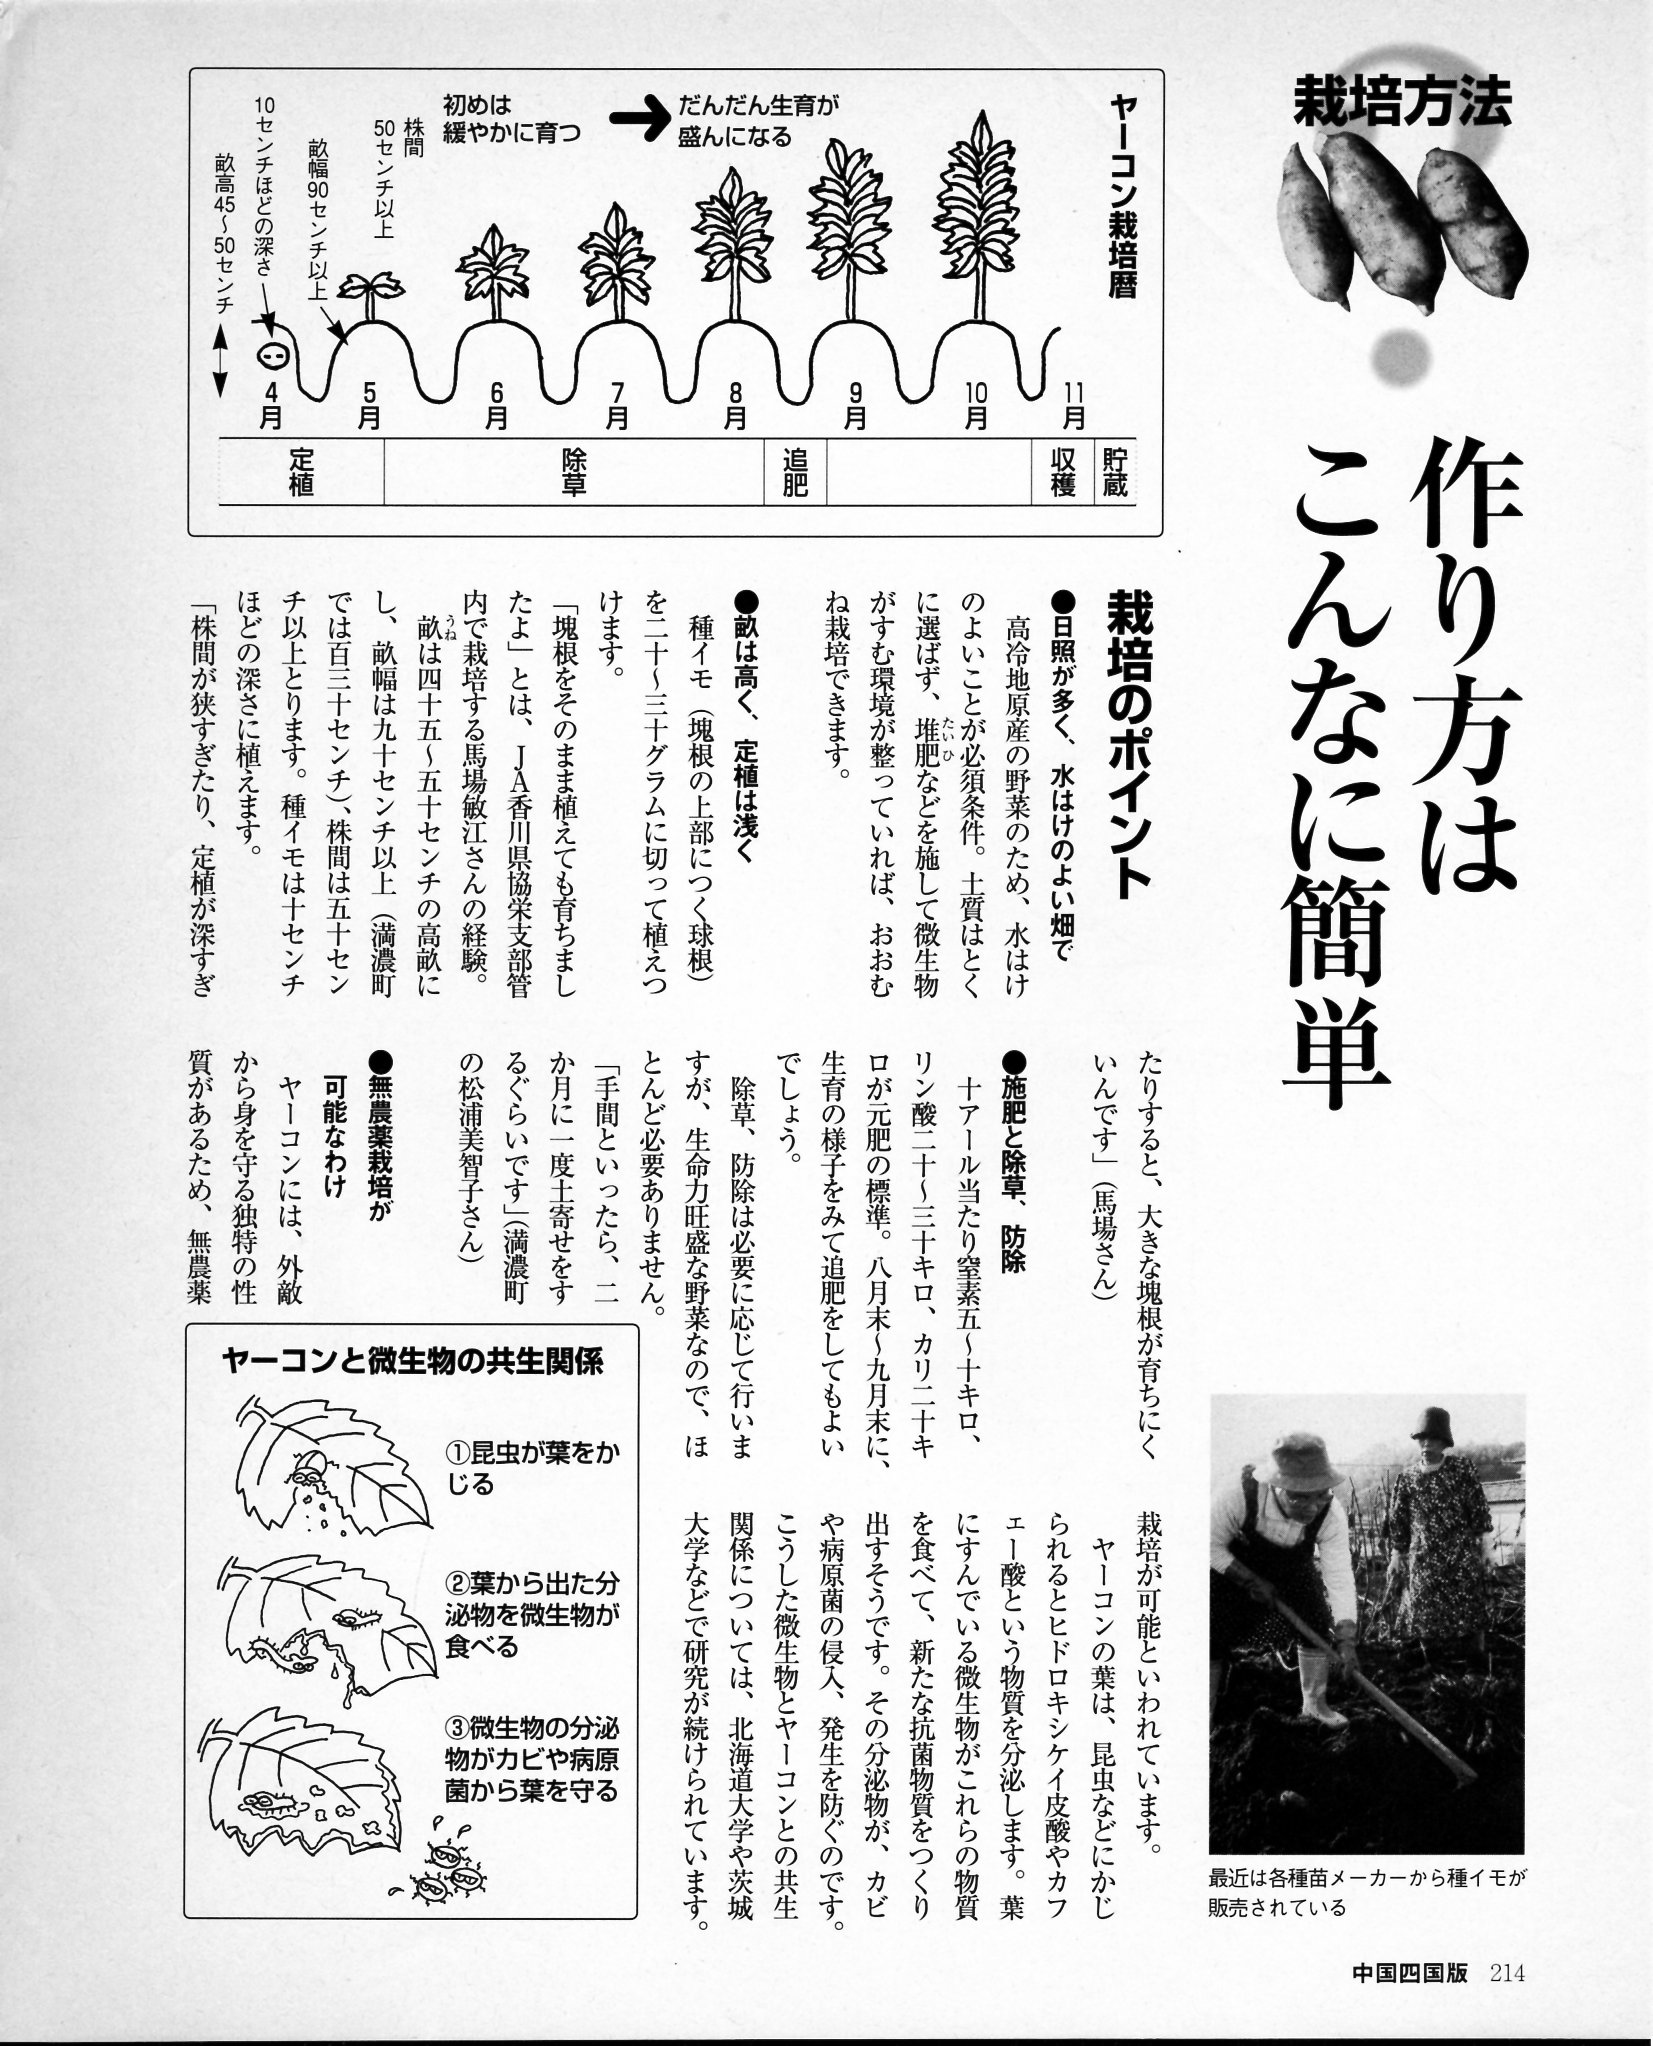 栽培方法
作り方は
こんなに簡単
ヤーコン栽培暦
初めは
緩やかに育つ
だんだん生育が
盛んになる
株間
50センチ以上
畝幅90センチ以上
10センチほどの深さ
畝高45〜50センチ
4月
5月
6月
7月
8月
9月
10月
11月
定植
除草
追肥
収穫
貯蔵
栽培のポイント
●日照が多く、水はけのよい畑で
高冷地原産の野菜のため、水はけ
のよいことが必須条件。土質はとく
に選ばず、堆肥などを施して微生物
たいひ
がすむ環境が整っていれば、おおむ
ね栽培できます。
●畝は高く、定植は浅く
種イモ（塊根の上部につく球根）
を二十〜三十グラムに切って植えつ
けます。
「塊根をそのまま植えても育ちまし
たよ」とは、ＪＡ香川県協栄支部管
内で栽培する馬場敏江さんの経験。
畝は四十五〜五十センチの高畝に
うね
し、畝幅は九十センチ以上（満濃町
では百三十センチ）、株間は五十セン
チ以上とります。種イモは十センチ
ほどの深さに植えます。
「株間が狭すぎたり、定植が深すぎ
たりすると、大きな塊根が育ちにく
いんです」（馬場さん）
●施肥と除草、防除
十アール当たり窒素五〜十キロ、
リン酸二十〜三十キロ、カリ二十キ
ロが元肥の標準。八月末〜九月末に、
生育の様子をみて追肥をしてもよい
でしょう。
除草、防除は必要に応じて行いま
すが、生命力旺盛な野菜なので、ほ
とんど必要ありません。
「手間といったら、二
か月に一度土寄せをす
るぐらいです」（満濃町
の松浦美智子さん）
●無農薬栽培が
可能なわけ
ヤーコンには、外敵
から身を守る独特の性
質があるため、無農薬
栽培が可能といわれています。
ヤーコンの葉は、昆虫などにかじ
られるとヒドロキシケイ皮酸やカフ
ェー酸という物質を分泌します。葉
にすんでいる微生物がこれらの物質
を食べて、新たな抗菌物質をつくり
出すそうです。その分泌物が、カビ
や病原菌の侵入、発生を防ぐのです。
こうした微生物とヤーコンとの共生
関係については、北海道大学や茨城
大学などで研究が続けられています。
ヤーコンと微生物の共生関係
①昆虫が葉をか
じる
②葉から出た分
泌物を微生物が
食べる
③微生物の分泌
物がカビや病原
菌から葉を守る
最近は各種苗メーカーから種イモが
販売されている
中国四国版 214